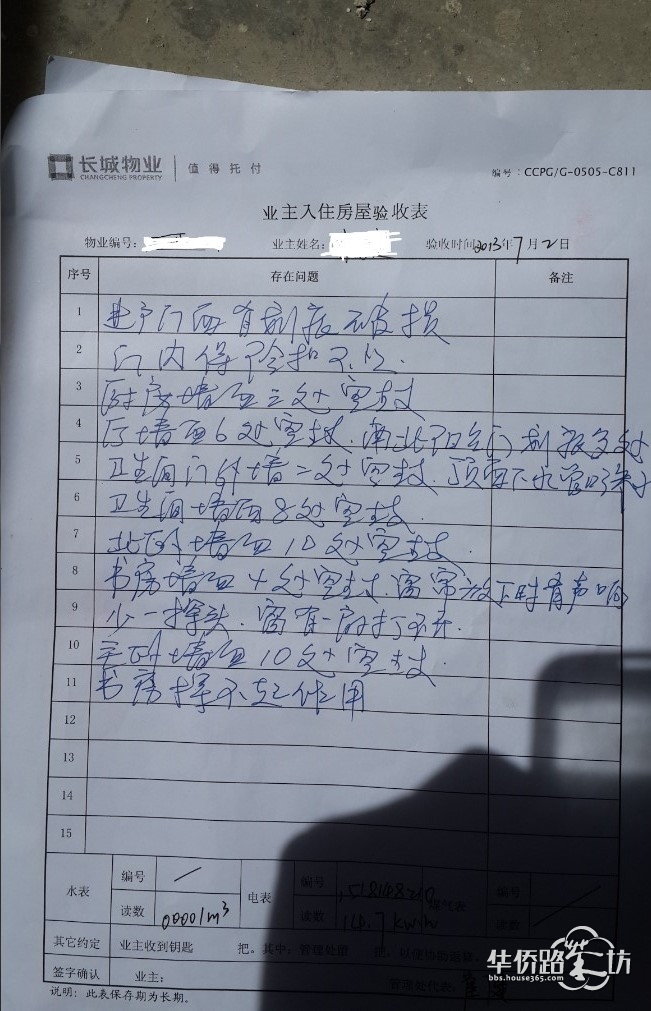 长城物业 值得托付
CHANGCHENG PROPERTY
编号:CCPG/G-0505-C811
业主入住房屋验收表
物业编号: 业主姓名: 验收时间 2013年7月2日
序号 存在问题 备注
1 进户门面有划痕破损
2 门内
3 厨房墙面三处空鼓
4 厅墙面6处空鼓.南北阳台门划痕多处
5 卫生间门外墙二处空鼓.顶面下水管
6 卫生间墙面8处空鼓.
7 北卧墙面10处空鼓.
8 书房墙面4处空鼓.窗帘放下时有声响
9 少一探头.窗有一扇打不开.
10 主卧墙面10处空鼓.
11 书房 不起作用
12
13
14
15
水表 编号 / 电表 编号 编号
读数 00001m³ 读数 读数
其它约定 业主收到钥匙 把。其中:管理处留 把,以便协助维修
签字确认 业主: 管理处代表:
说明:此表保存期为长期。
华侨路茶坊
bbs.house365.com